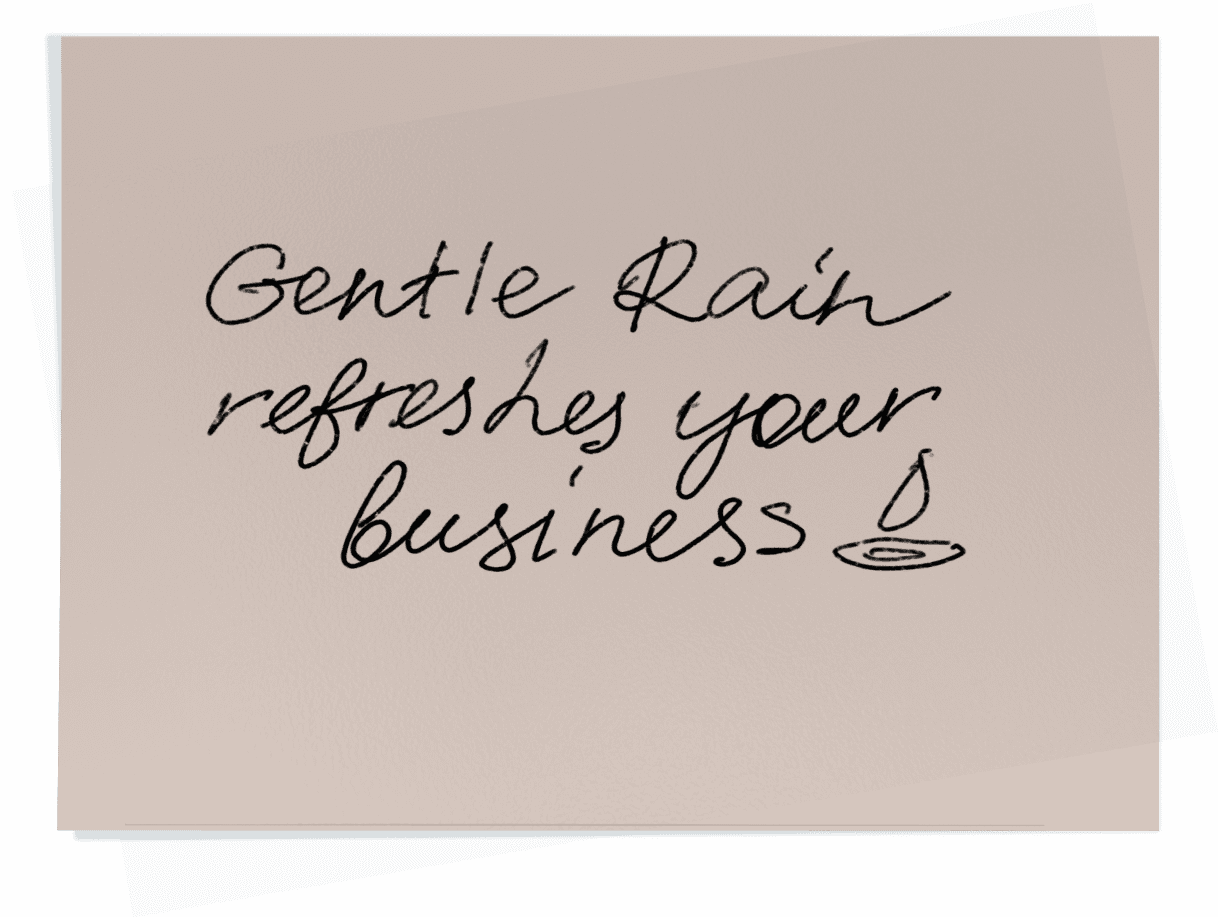 Gentle Rain
refreshes your
business